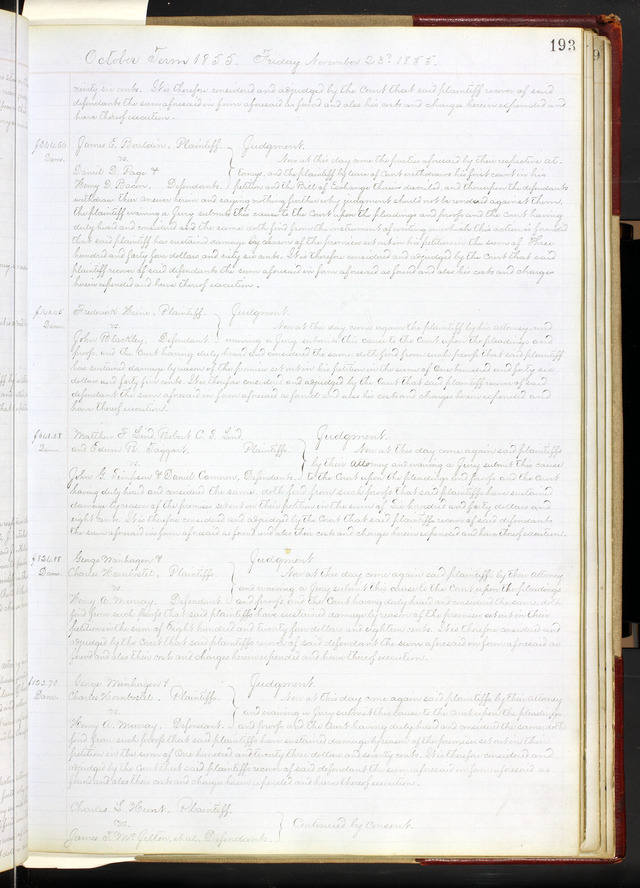 193
October Term 1855. Friday November 23d 1855.
ninety six cents. It is therefore considered and adjudged by the Court that said plaintiff recover of said
defendants the sum aforesaid in form aforesaid so found and also his costs and charges herein expended and
have thereof execution.
James E. Bouldin, Plaintiff. Judgment.
Dams. vs. Now at this day come the parties aforesaid by their respective at-
Daniel D. Page & torneys, and the plaintiff by leave of Court withdraws his first count in his
Henry D. Bacon, Defendants. petition and the Bill of Exchange therein described, and thereupon the defendants
withdraw their answer herein and saying nothing further why judgment should not be rendered against them,
the plaintiff waiving a Jury submits this cause to the Court upon the pleadings and proofs and the Court having
duly heard and considered the same doth find from the instrument of writing on which this action is founded
that said plaintiff has sustained damage by reason of the premises set out in his petition in the sum of Three
hundred and forty four dollars and sixty six cents. It is therefore considered and adjudged by the Court that said
plaintiff recover of said defendants the sum aforesaid in form aforesaid so found and also his costs and charges
herein expended and have thereof execution.
Frederick Heine, Plaintiff. Judgment.
Dams. vs. Now at this day come again the plaintiff by his attorney, and
John Blackley, Defendant. waiving a Jury submits this cause to the Court upon the pleadings and
proofs, and the Court having duly heard and considered the same, doth find from such proof that said plaintiff
has sustained damage by reason of the premises set out in his petition in the sum of One hundred and forty six
dollars and forty five cents. It is therefore considered and adjudged by the Court that said plaintiff recover of said
defendant the sum aforesaid in form aforesaid so found and also his costs and charges herein expended and
have thereof execution.
Matthew F. Lind, Robert C. E. Lind Judgment.
Dams. and Edwin R. Taggart, Plaintiffs. Now at this day come again said plaintiffs
vs. by their attorney and waiving a Jury submit this cause
John G. Simpson & Daniel Cameron, Defendants. to the Court upon the pleadings and proofs and the Court
having duly heard and considered the same doth find from such proofs that said plaintiffs have sustained
damage by reason of the premises set out in their petition in the sum of Six hundred and forty dollars and
eight cents. It is therefore considered and adjudged by the Court that said plaintiffs recover of said defendants
the sum aforesaid in form aforesaid so found and also their costs and charges herein expended and have thereof execution.
$824.18 George Meinhagen & Judgment
Dams. Charles Hambrestel, Plaintiffs. Now at this day come again said plaintiffs by their attorney
vs. and waiving a Jury submit this cause to the Court upon the pleadings
Henry A. Murray, Defendant. and proofs, and the Court having duly heard and considered the same doth
find from such proofs that said plaintiffs have sustained damage by reason of the premises set out in their
petition in the sum of Eight hundred and twenty four dollars and eighteen cents. It is therefore considered and
adjudged by the Court that said plaintiffs recover of said defendant the sum aforesaid in form aforesaid so
found and also their costs and charges herein expended and have thereof execution.
$123.70 George Meinhagen & Judgment.
Dams. Charles Hambrestel, Plaintiffs. Now at this day come again said plaintiffs by their attorney
vs. and waiving a Jury submit this cause to the Court upon the pleadings
Henry A. Murray, Defendant. and proofs and the Court having duly heard and considered the same doth
find from such proofs that said plaintiffs have sustained damage by reason of the premises set out in their
petition in the sum of One hundred and twenty three dollars and seventy cents. It is therefore considered and
adjudged by the Court that said plaintiffs recover of said defendant the sum aforesaid in form aforesaid so
found and also their costs and charges herein expended and have thereof execution.
Charles L. Hunt, Plaintiff.
vs. Continued by consent.
James T. et al. Defendants.